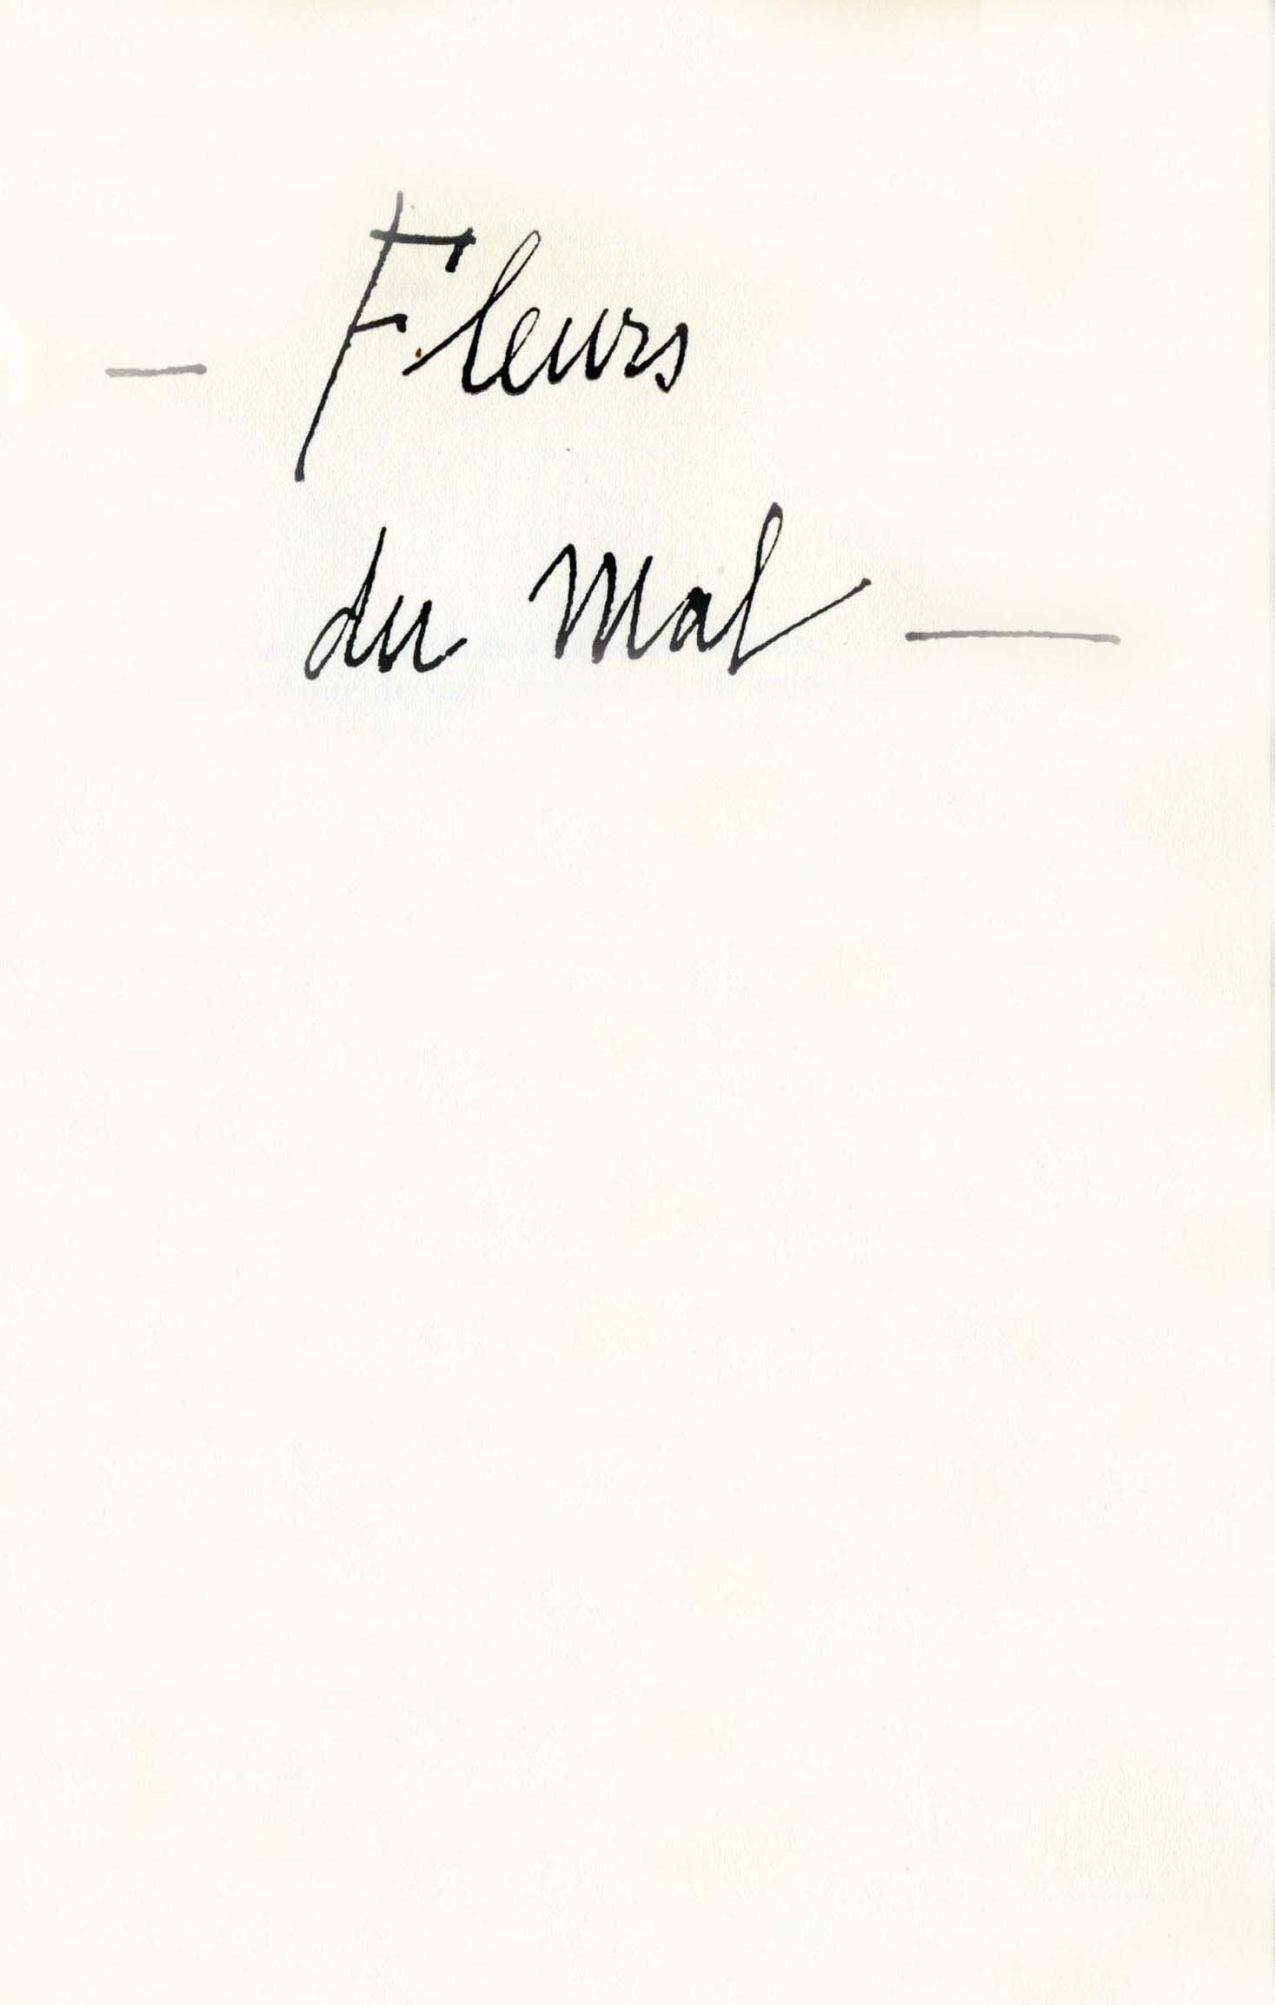 — Fleurs
du Mal —